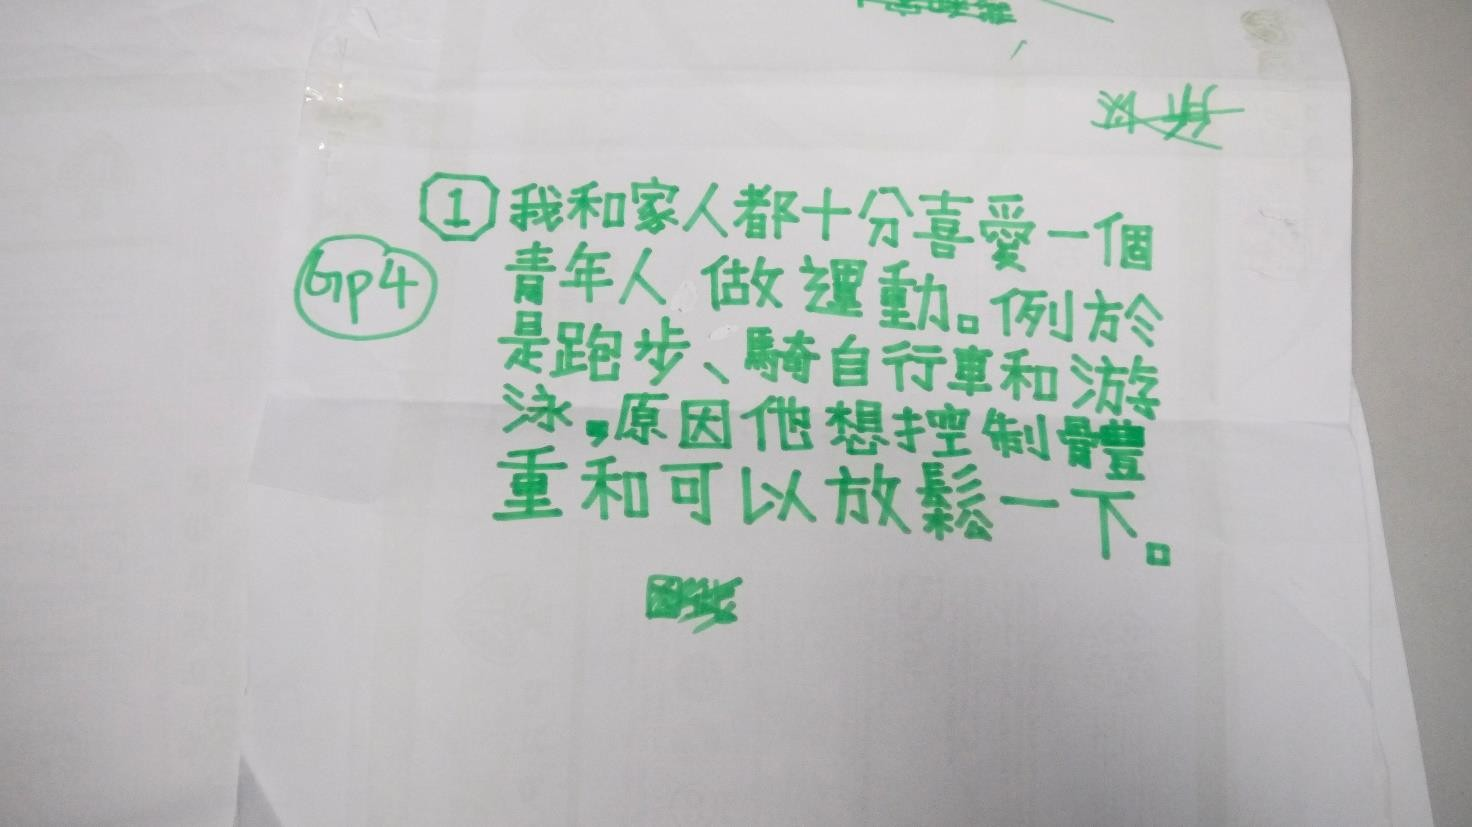 1 我和家人都十分喜愛一個
Gp4
青年人 做運動。例於
是跑步、騎自行車和游
泳,原因他想控制體
重和可以放鬆一下。